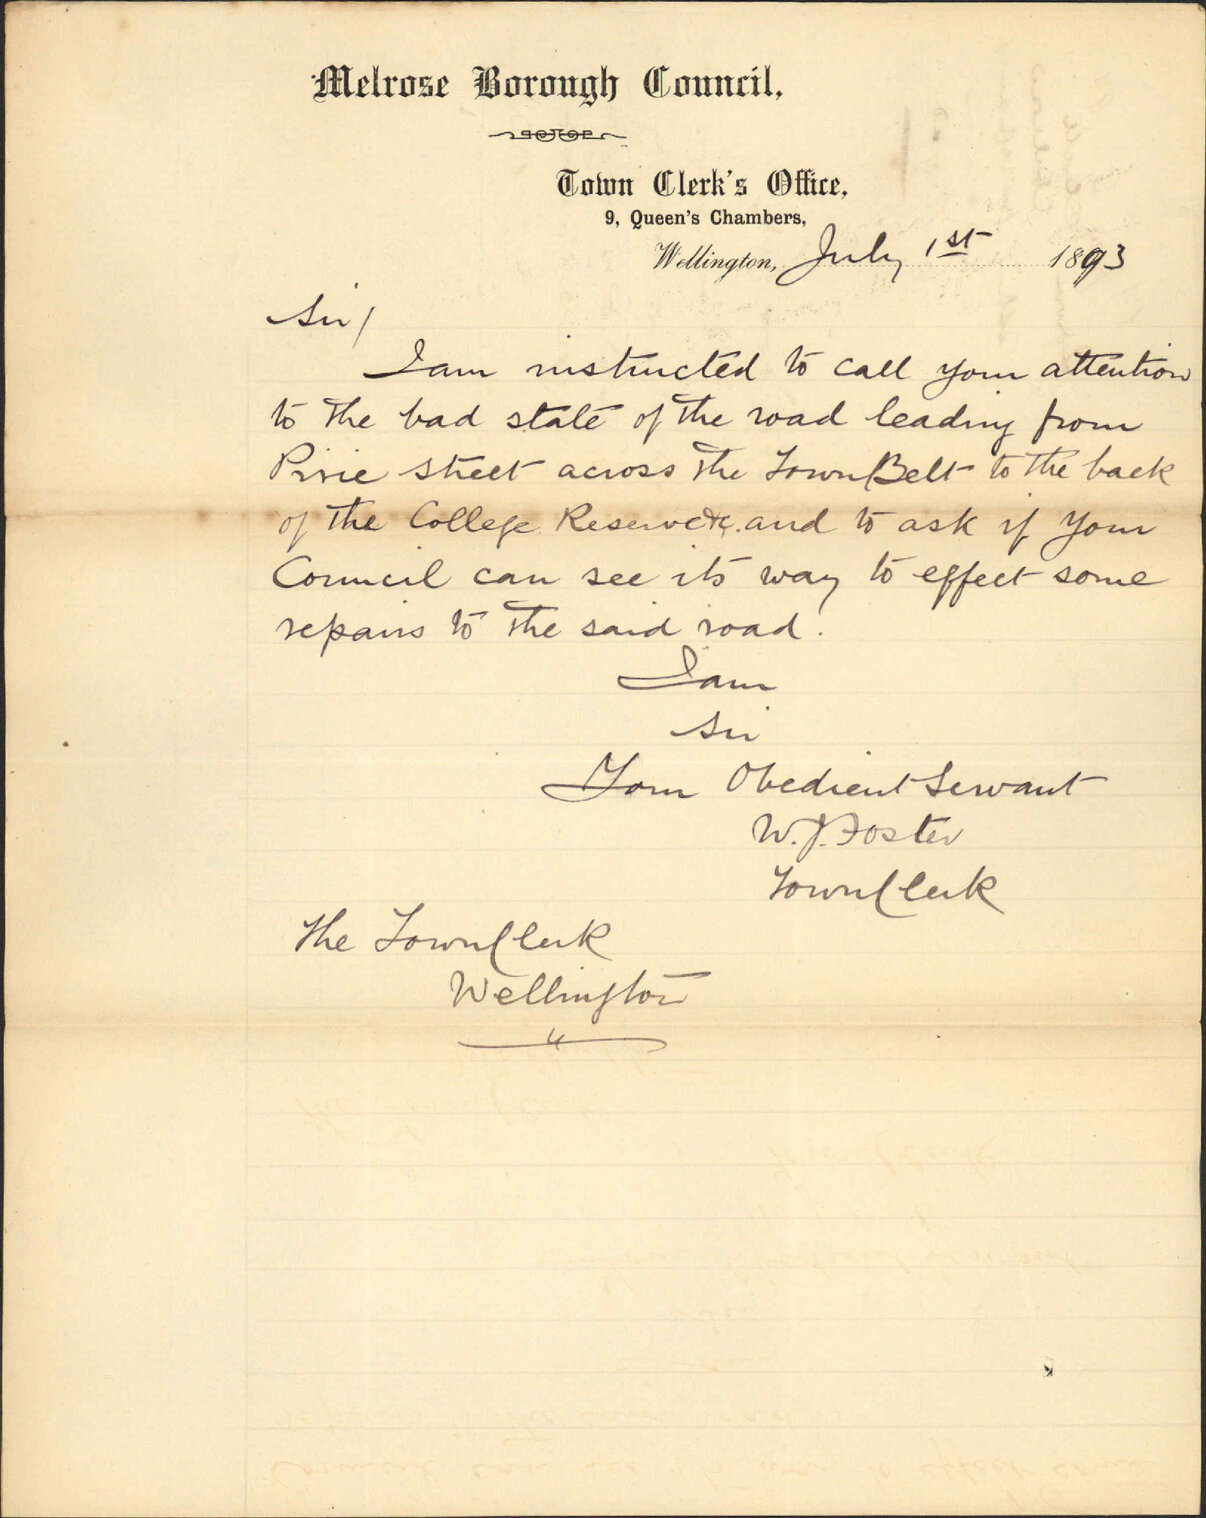 Melrose Borough Council,
Town Clerk's Office,
9, Queen's Chambers,
Wellington, July 1st 1893
Sir/
I am instructed to call your attention
to the bad state of the road leading from
Pirie Street across the Town Belt to the back
of the College Reserve &c. and to ask if your
Council can see its way to effect some
repairs to the said road.
I am
Sir
Your Obedient Servant
W. J. Foster
Town Clerk
The Town Clerk
Wellington